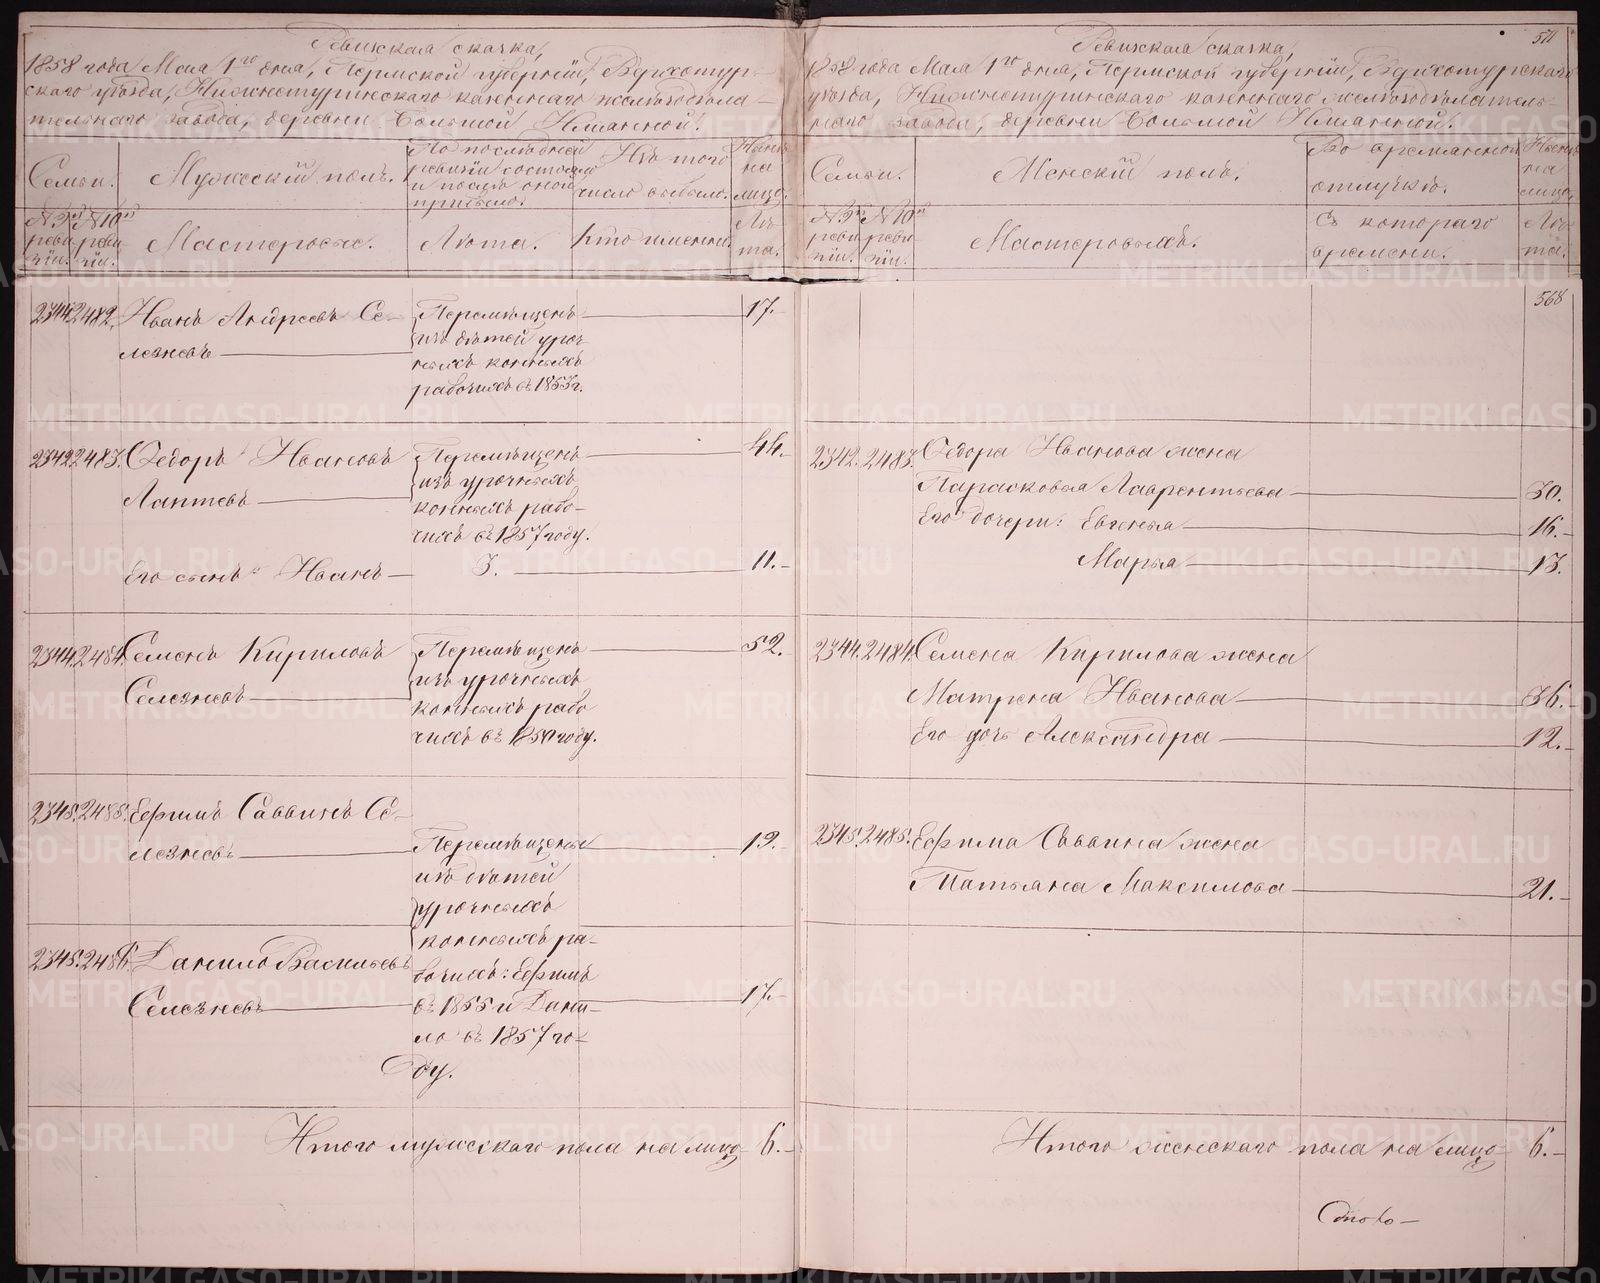 Ревижская сказка,
1858 года Мая 1го дня, Пермской губернiи, Верхотур-
скаго уѣзда, Нижнетуринскаго казеннаго желѣзодѣла-
тельнаго завода, деревни Большой Имянной.
Семьи.
Мужескiй полъ.
По послѣдней
ревизiи состояло
и послѣ оной
прибыло.
Изъ того
число выбыло.
Нынѣ
на
лицо.
№ 9й
реви
зiи.
№ 10й
реви
зiи.
Мастеровые.
Лѣта.
Кто именно.
Лѣ
та.
2341. 2482. Иванъ Андреевъ Се-
лезневъ
Перемѣщенъ
изъ дѣтей уроч-
ныхъ конныхъ
рабочихъ въ 1853г.
17.
2342. 2483. Ѳедоръ Ивановъ
Лаптевъ
Перемѣщенъ
изъ урочныхъ
конныхъ рабо-
чихъ въ 1857 году.
44.
Его сынъ Иванъ 3. 11.
2344. 2484. Семенъ Кириловъ
Селезневъ
Перемѣщенъ
изъ урочныхъ
конныхъ рабо
чихъ въ году.
52.
2345. 2485. Ефимъ Саввинъ Се-
лезневъ
19.
2345. 2486. Данило Васильевъ
Селезневъ
17.
Перемѣщены
изъ дѣтей
урочныхъ
конныхъ ра-
бочихъ: Ефимъ
въ 1855 и Дани-
ло въ 1857 го-
ду.
Итого мужескаго пола на лицо 6.
Ревижская сказка,
1858 года Мая 1го дня, Пермской губернiи, Верхотурскаго
уѣзда, Нижнетуринскаго казеннаго желѣзодѣлатель-
наго завода, деревни Большой Имянной.
Семьи.
Женскiй полъ.
Во временной
отлучкѣ.
Нынѣ
на
лицо.
№ 9й
реви
зiи.
№ 10й
реви
зiи.
Мастеровыхъ.
Съ котораго
времени.
Лѣ-
та.
568
2342. 2483. Ѳедора Иванова жена
Парасковья Лаврентьева 30.
Его дочери: Евгенья 16.
Марья 13.
2344. 2484. Семена Кирилова жена
Матрена Иванова 36.
Его дочь Александра 12.
2345. 2485. Ефима Саввина жена
Татьяна Максимова 21.
Итого женскаго пола на лицо 6.
METRIKI.GASO-URAL.RU